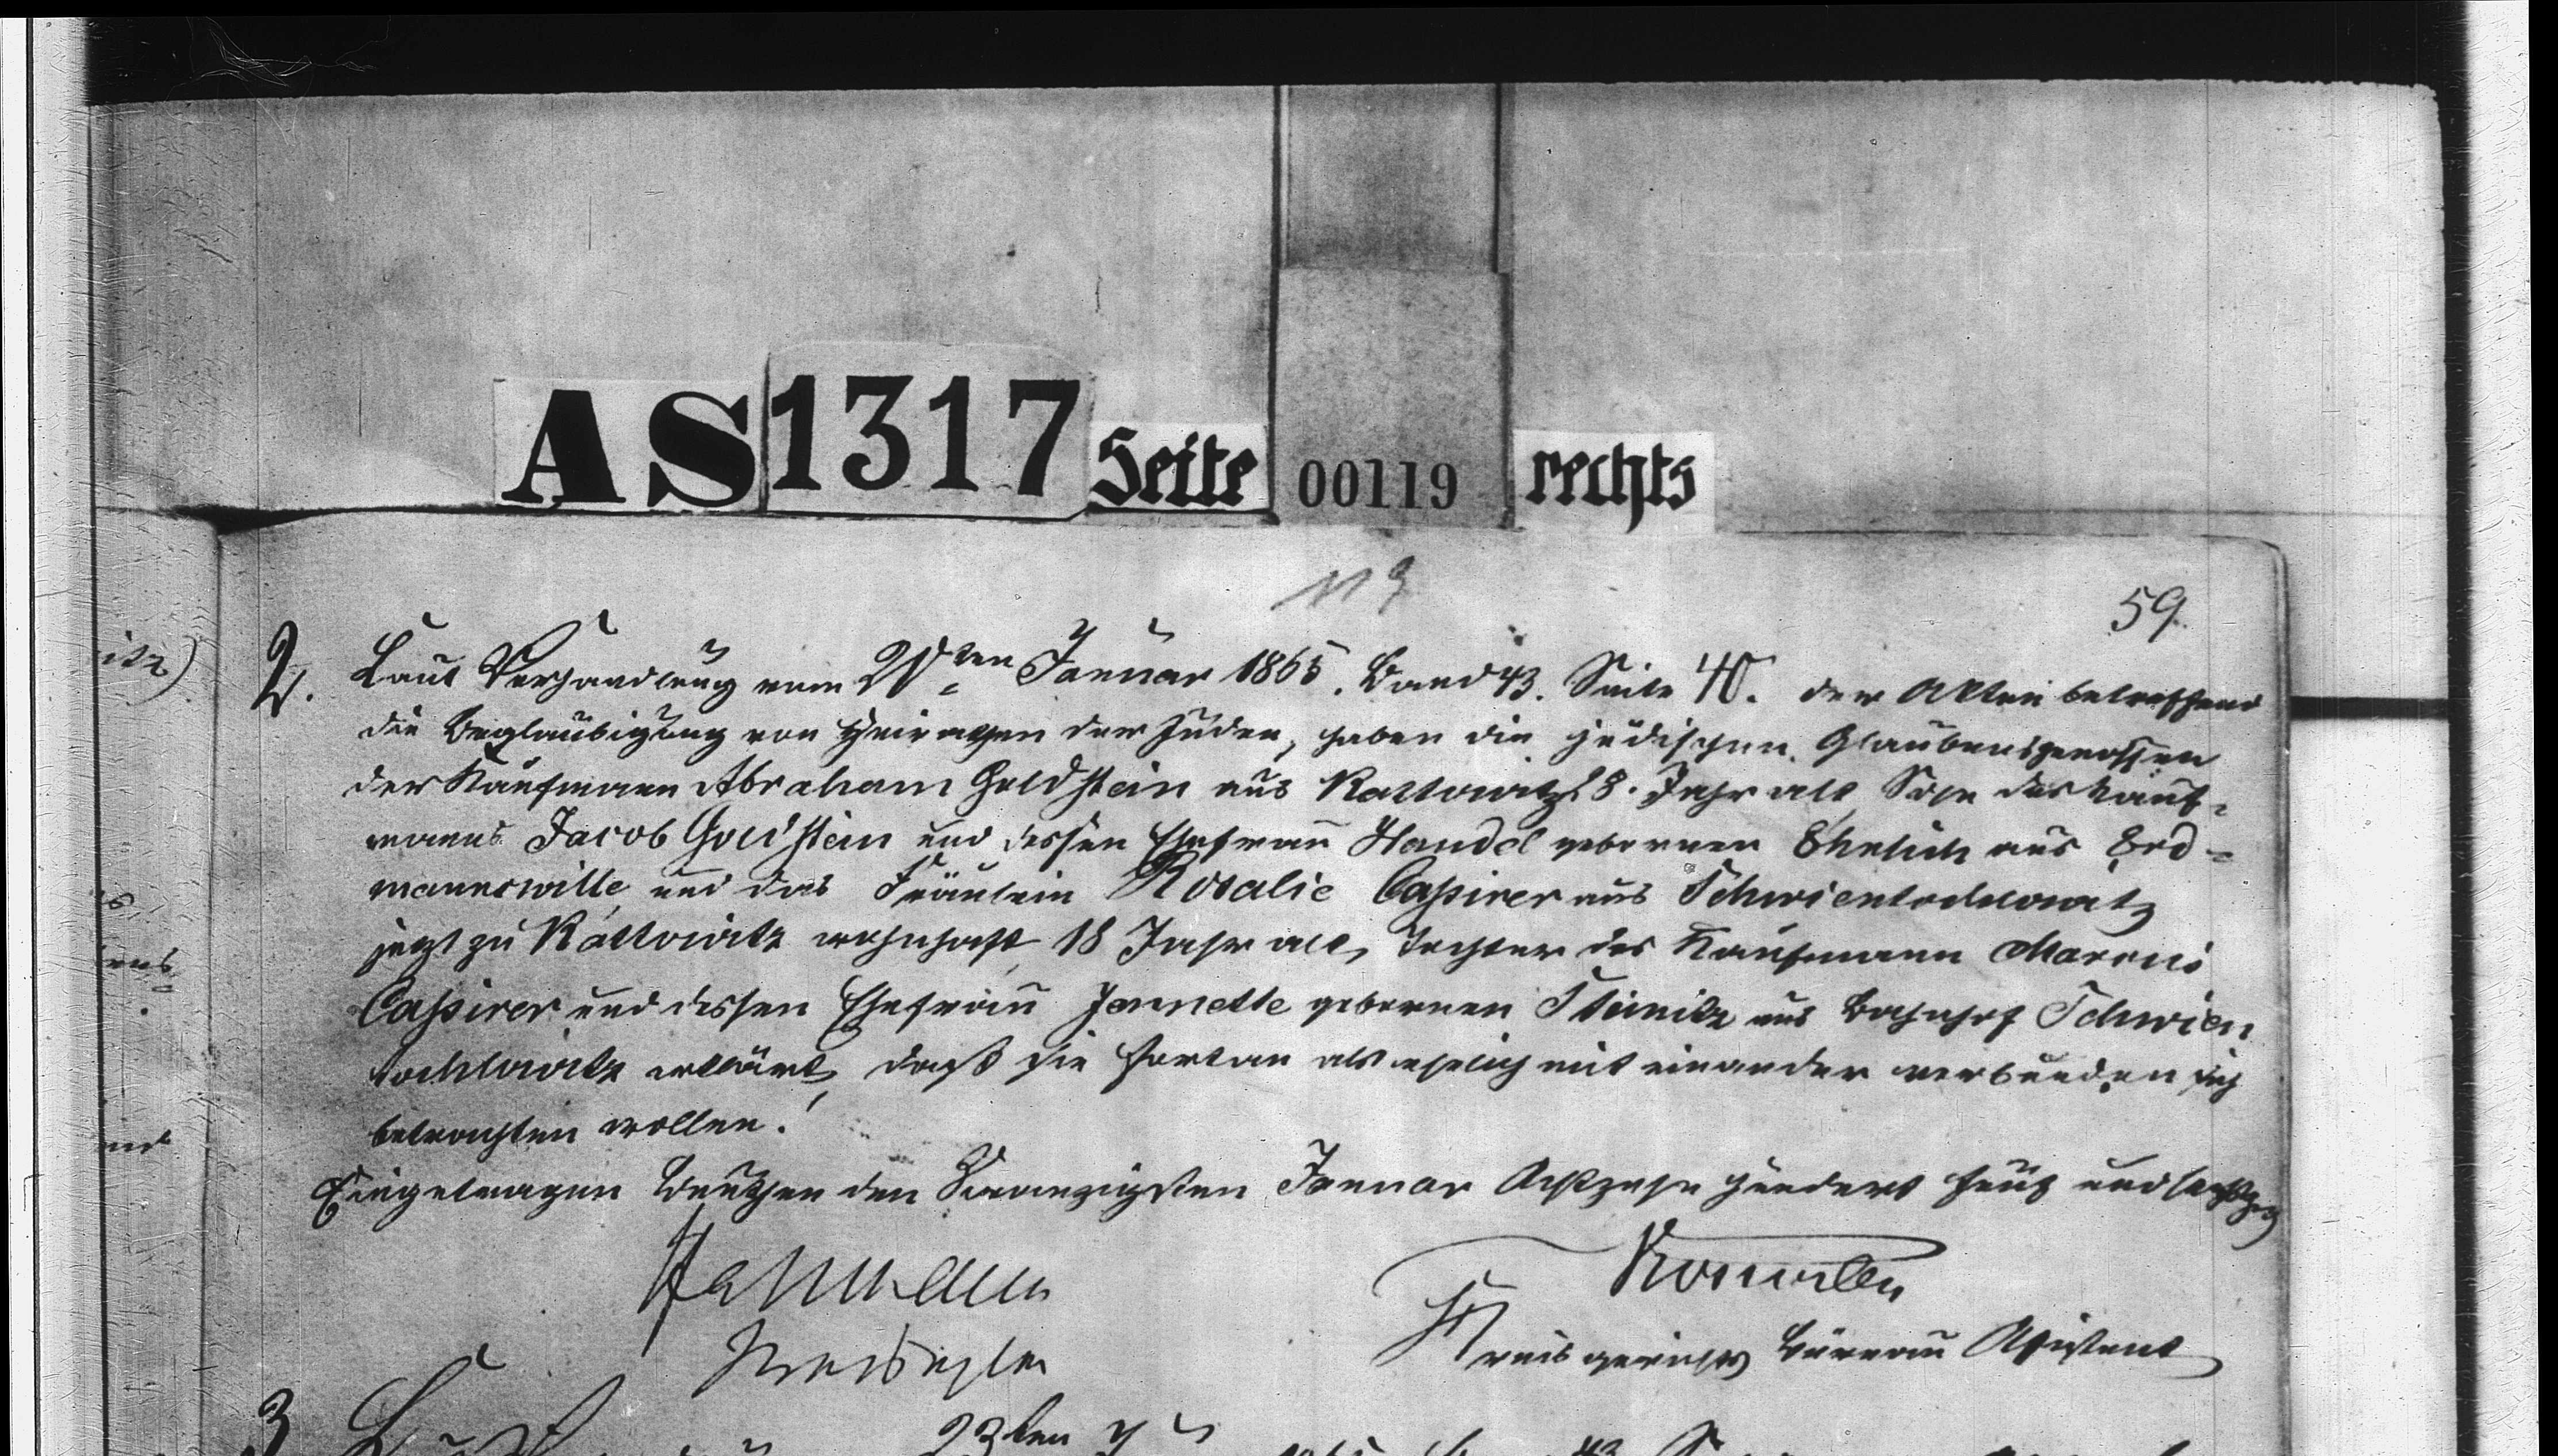 AS 1317 Seite 00119 rechts
119
59.
2. Laut Verhandlung vom 20ten Januar 1865. Band 43. Seite 40. der Akten betreffend
die Beglaubigung von Heirathen der Juden, haben die jüdischen Glaubensgenossen
der Kaufmann Abraham Goldstein aus Kattowitz 28. Jahr alt, Sohn des Kauf-
manns Jacob Goldstein und dessen Ehefrau Handel gebornen Ehrlich aus Erd-
mannswille und das Fräulein Rosalie Caßirer aus Schwientochlowitz
jetzt zu Kattowitz wohnhaft 18 Jahr alt, Tochter des Kaufmann Marcus
Caßirer und dessen Ehefrau Jennette gebornen Steinitz aus Bahnhof Schwien
tochlowitz erklärt, daß sie fortan als ehelich mit einander verbunden sich
betrachten wollen.
Eingetragen Beuthen den Zwanzigsten Januar Achtzehn hundert fünf und sechszig
Kreisrichter
Kreisgerichts Büreau Aßistent
3 23ten